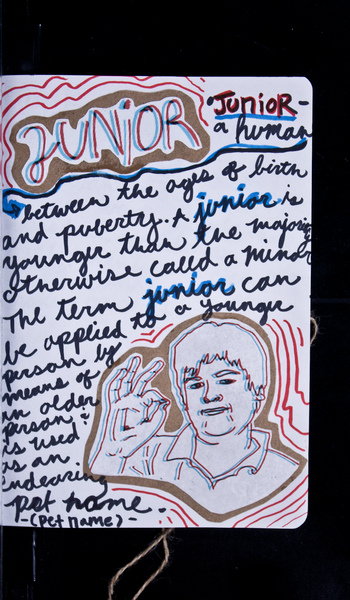 JUNIOR
"JUNIOR-
a human
between the ages of birth
and puberty.. A junior is
younger than the majority
otherwise called a minor
The term junior can
be applied to a younger
person by
means of
an older
person;
is used
as an
endearing
pet name.
-(Pet Name)-